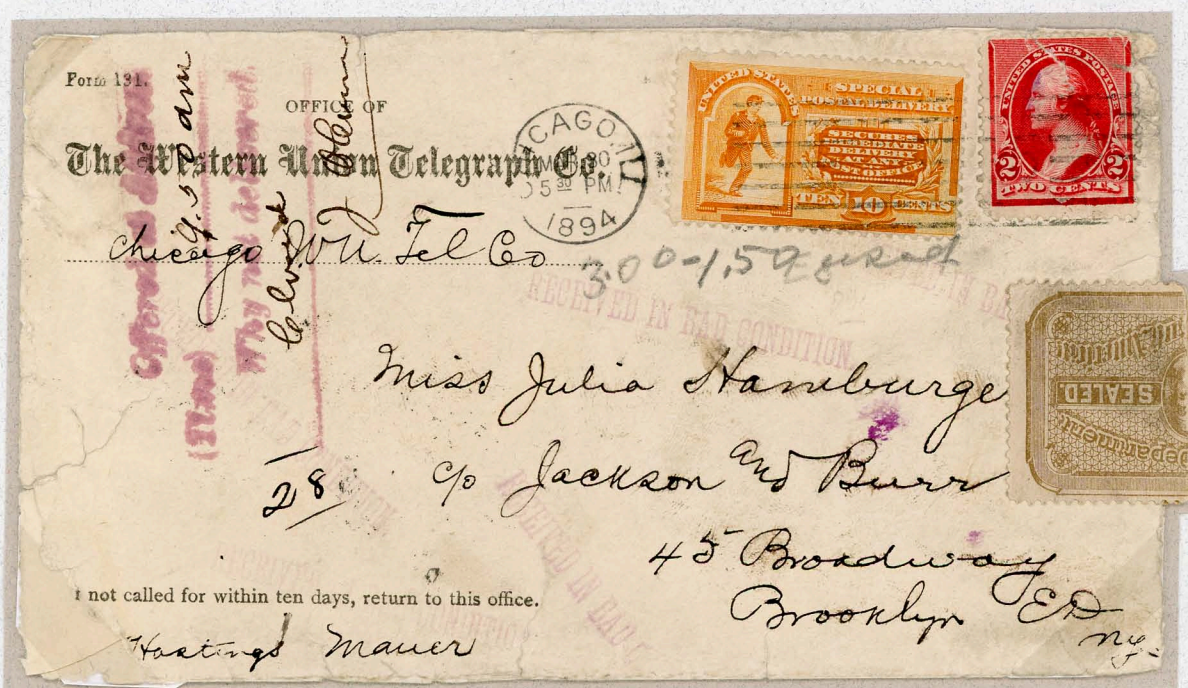 Form 131.
OFFICE OF
The Western Union Telegraph Co.
Chicago W U. Tel Co
CHICAGO, ILL
5 30 PM
1894
UNITED STATES
SPECIAL
POSTAL DELIVERY
SECURES
IMMEDIATE
DELIVERY
AT ANY
POST OFFICE
TEN 10 CENTS
UNITED STATES POSTAGE
2 2
TWO CENTS
RECEIVED IN BAD CONDITION.
(Time)
Why not delivered.
Miss Julia Hamburge
c/o Jackson and Burr
45 Broadway
Brooklyn ED
NY-
28
SEALED.
Department
RECEIVED IN BAD
RECEIVED
not called for within ten days, return to this office.
Hastings Mauer